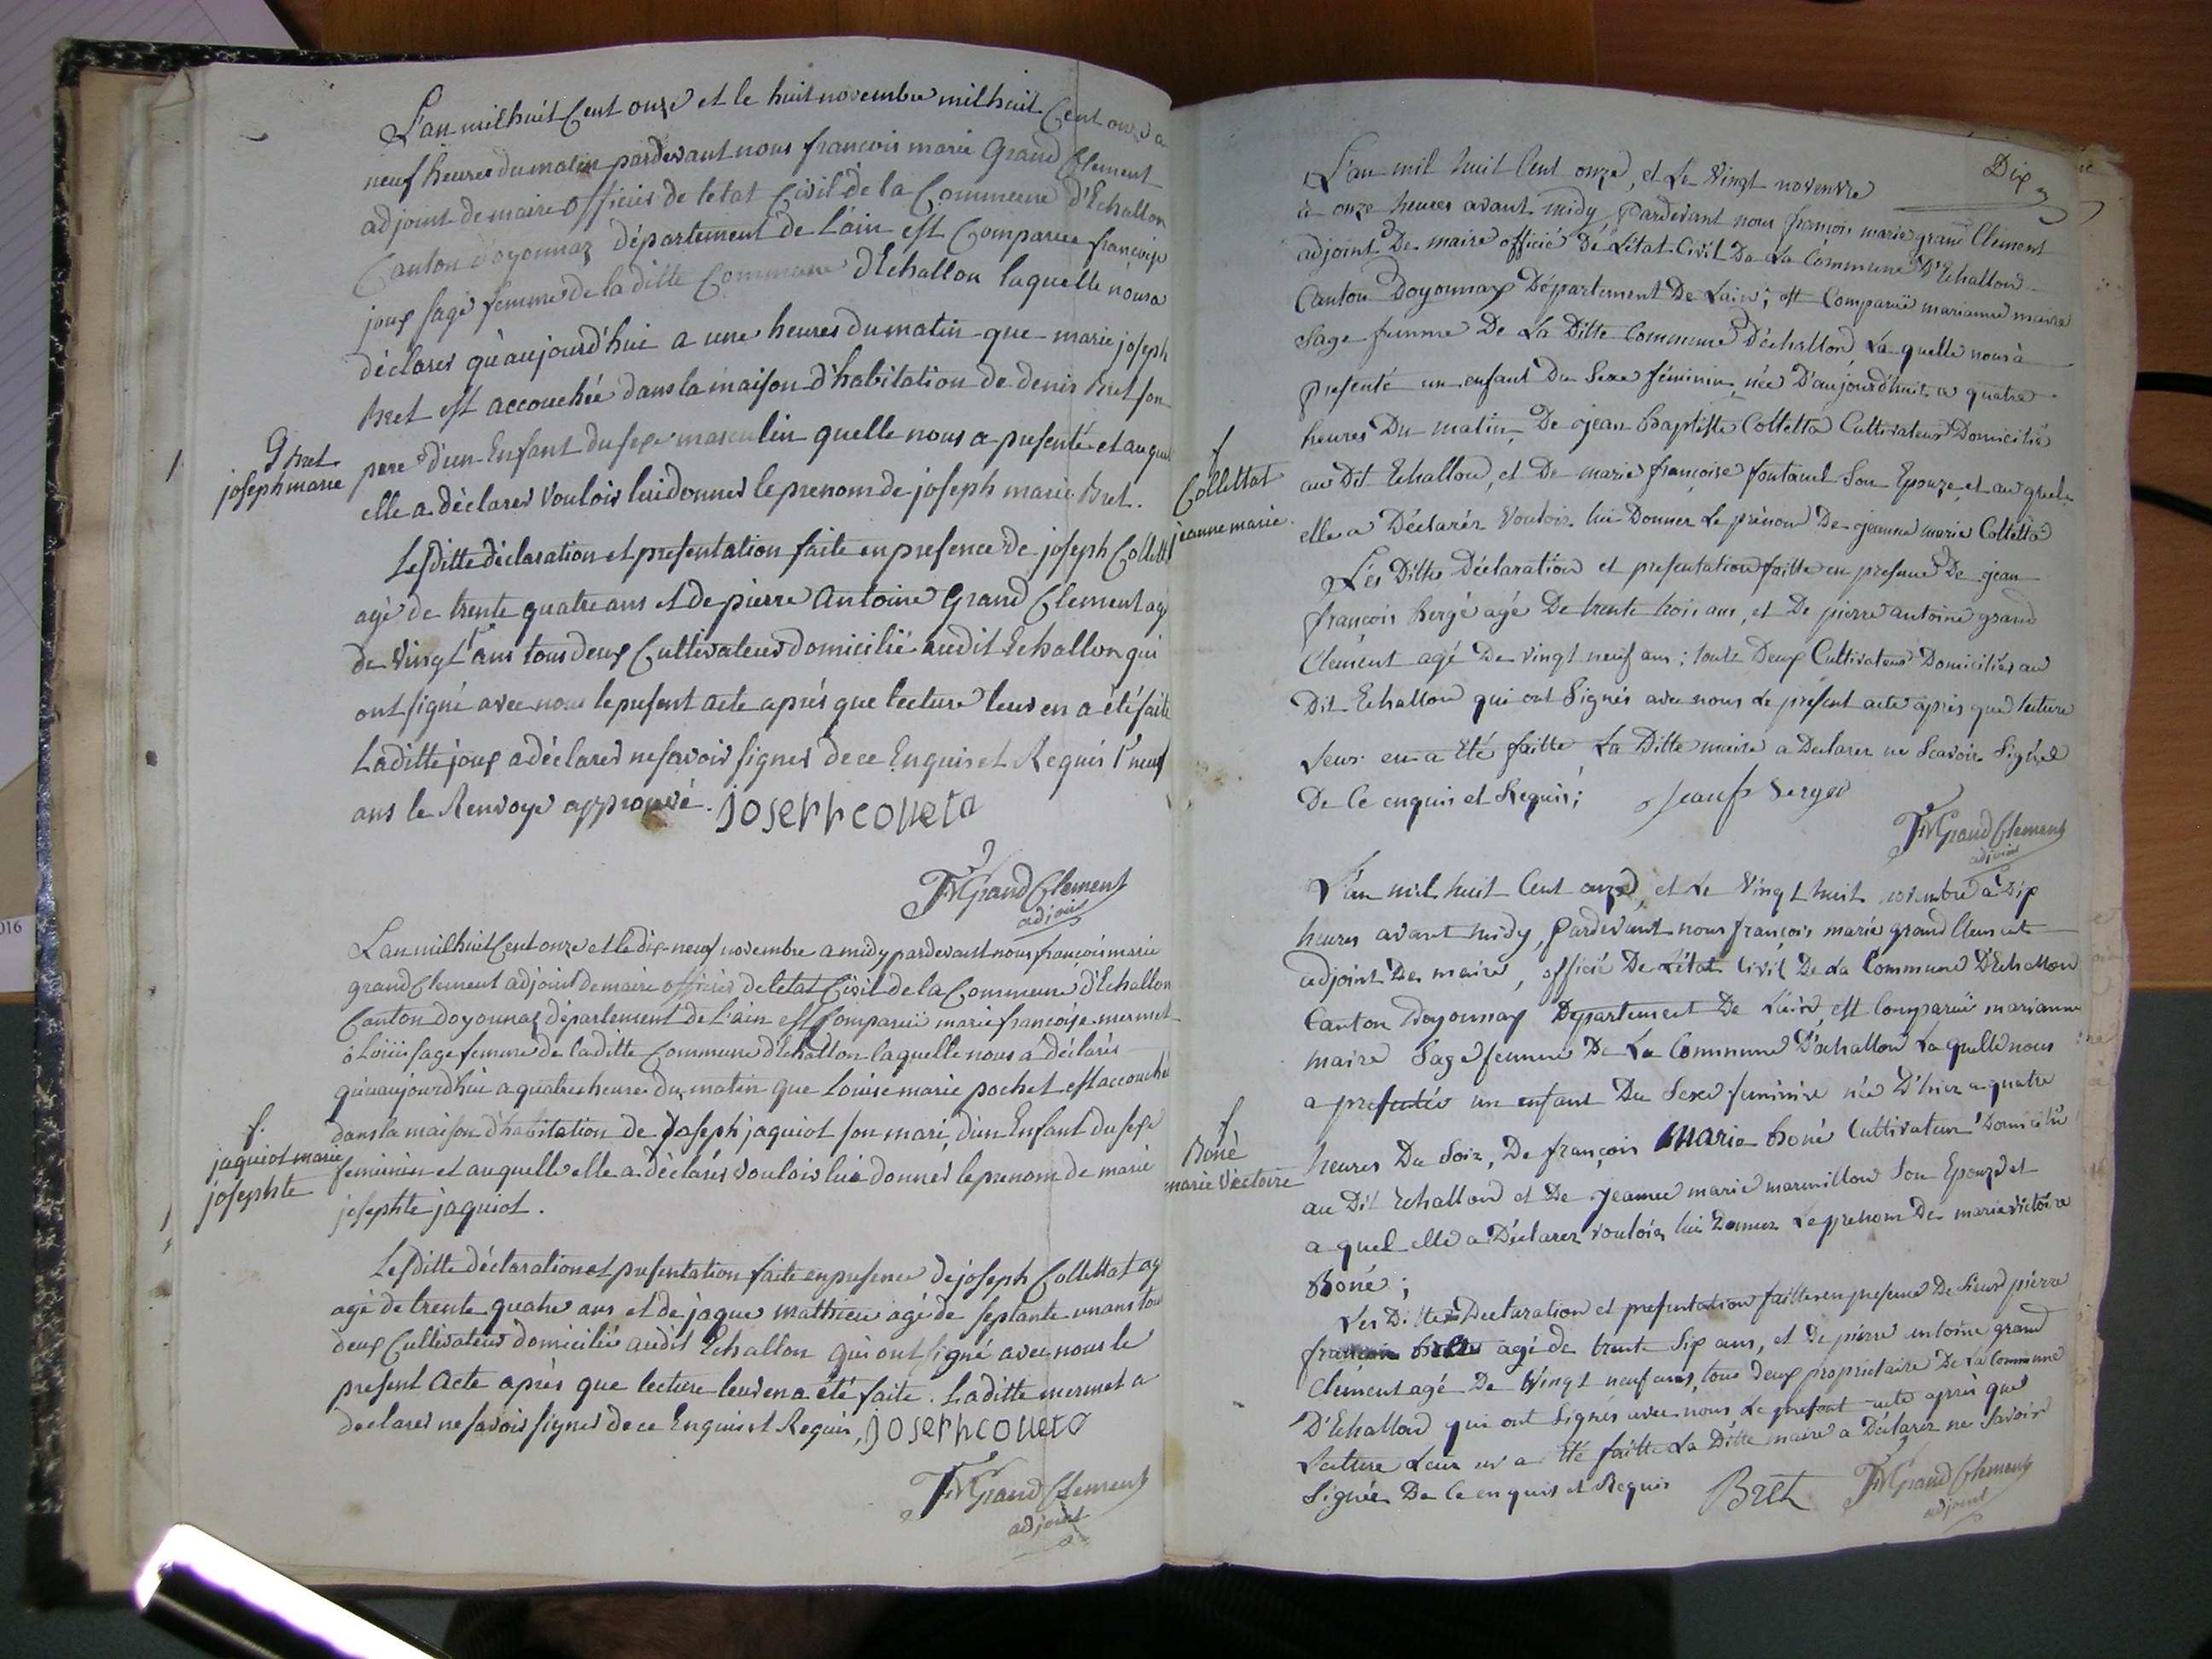 L'an mil huit Cent onze et le huit novembre mil huit Cent onze a
neuf heures du matin pardevant nous francois marie Grand Clement
adjoint de maire officier de letat Civil de la Commune d'Echallon
Canton d'oyonnaz département de l'ain est Comparue francoise
joux sage femme de la ditte Commune d'Echallon laquelle nous a
déclarer qu'aujourd'hui a une heures du matin que marie joseph
Bret est accouchée dans la maison d'habitation de denis Bret son
pere d'un Enfant du sexe masculin quelle nous a presenté et auquel
elle a déclarer vouloir lui donner le prenom de joseph marie Bret.
G Bret
joseph marie
Lesditte déclaration et presentation faite en presence de joseph Collett
agé de trente quatre ans et de pierre Antoine Grand Clement agé
de vingt ans tous deux Cultivateur domicilié audit Echallon qui
ont signé avec nous le present acte aprés que lecture leur en a été faite
Laditte joux a déclarer ne savoir signer de ce Enquis et Requis neuf
ans le Renvoye approuvé. joseph colleta
FM Grand Clement
adjoint
L'an mil huit Cent onze et le dix-neuf novembre a midy pardevant nous francois marie
grand Clement adjoint de maire officier de letat Civil de la Commune d'Echallon
Canton doyonnaz département de l'ain est Comparuë marie francoise mermet
sage femme de laditte Commune d'Echallon laquelle nous a déclarés
qu'aujourdhui a quatre heures du matin que Louise marie pochet est accouché
dans la maison d'habitation de Joseph jaquiot son mari, d'un Enfant du sexe
feminin et auquelle elle a déclarés vouloir lui donner le prenom de marie
josephte jaquiot.
f.
jaquiot marie
josephte
Lesditte déclaration et presentation faite en presence de joseph Collettat ag
agé de trente quatre ans et de jaque mathieu agé de septante un ans tou
deux Cultivateur domicilié audit Echallon qui ont signé avec nous le
present Acte après que lecture leur en a été faite. Laditte mermet a
declarer ne savoir signer de ce Enquis et Requis, joseph colleta
FM Grand Clement
adjoint
Dix
L'an mil huit Cent onze, et Le Vingt novembre
à onze heures avant midy, pardevant nous françois marie grand Clement
adjoint De maire officié De L'état Civil De La Commune D'Echallon
Canton Doyonnax Département De Lain; est Comparuë marianne maire
Sage femme De La Ditte Commune D'échallon La quelle nous à
presenté un enfant Du Sexe féminin née D'aujourd'huit a quatre
heures Du matin, De jean Baptiste Colletta Cultivateur Domicilié
au Dit Echallon, et De marie françoise fontanel Son Epouze, et au quele
elle a Déclarér Vouloir lui Donner Le prénom De jeanne marie Colletta
f
Collettat
jeanne marie.
Les Dittes Déclaration et presentation faitte en presence De jean
françois Bergé agé De trente trois ans, et De pierre antoine grand
Clement agé De vingt neuf ans; touts Deux Cultivateur Domiciliés au
Dit Echallon qui ont Signés avec nous Le present acte après que lecture
Leur en a Eté faitte La Ditte maire a Declarer ne Scavoir Signer
De Ce enquis et Requis; Jean f Berger
FM Grand Clement
adjoint
L'an mil huit Cent onze, et Le Vingt huit novembre à Dix
heures avant midy, pardevant nous françois marie grand Clement
adjoint De maire, officié De L'état Civil De La Commune D'Echallon
Canton Doyonnax Departement De L'ain, est Comparuë marianne
maire Sage femme De La Commune D'echallon La quelle nous
a presentée un enfant Du Sexe feminin née D'hier a quatre
heures Du Soir, De françois Marie Boné Cultivateur Domicilié
au Dit Echallon et De jeanne marie marmillon Son Epouze et
a quel elle a Déclarer vouloir lui Donner Le prenom De marie victoire
Boné;
f
Boné
marie Victoire
Les Dittes Declaration et presentation faitte en presence De Sieur pierre
françois agé de trente Six ans, et De pierre antoine grand
Clément agé De Vingt neuf ans, tous Deux proprietaire De La Commune
D'Echallon qui ont Signés avec nous Le present acte après que
Lecture Leur en a Eté faitte La Ditte maire a Déclarer ne Savoir
Signée De Ce enquis et Requis Bret FM Grand Clement
adjoint